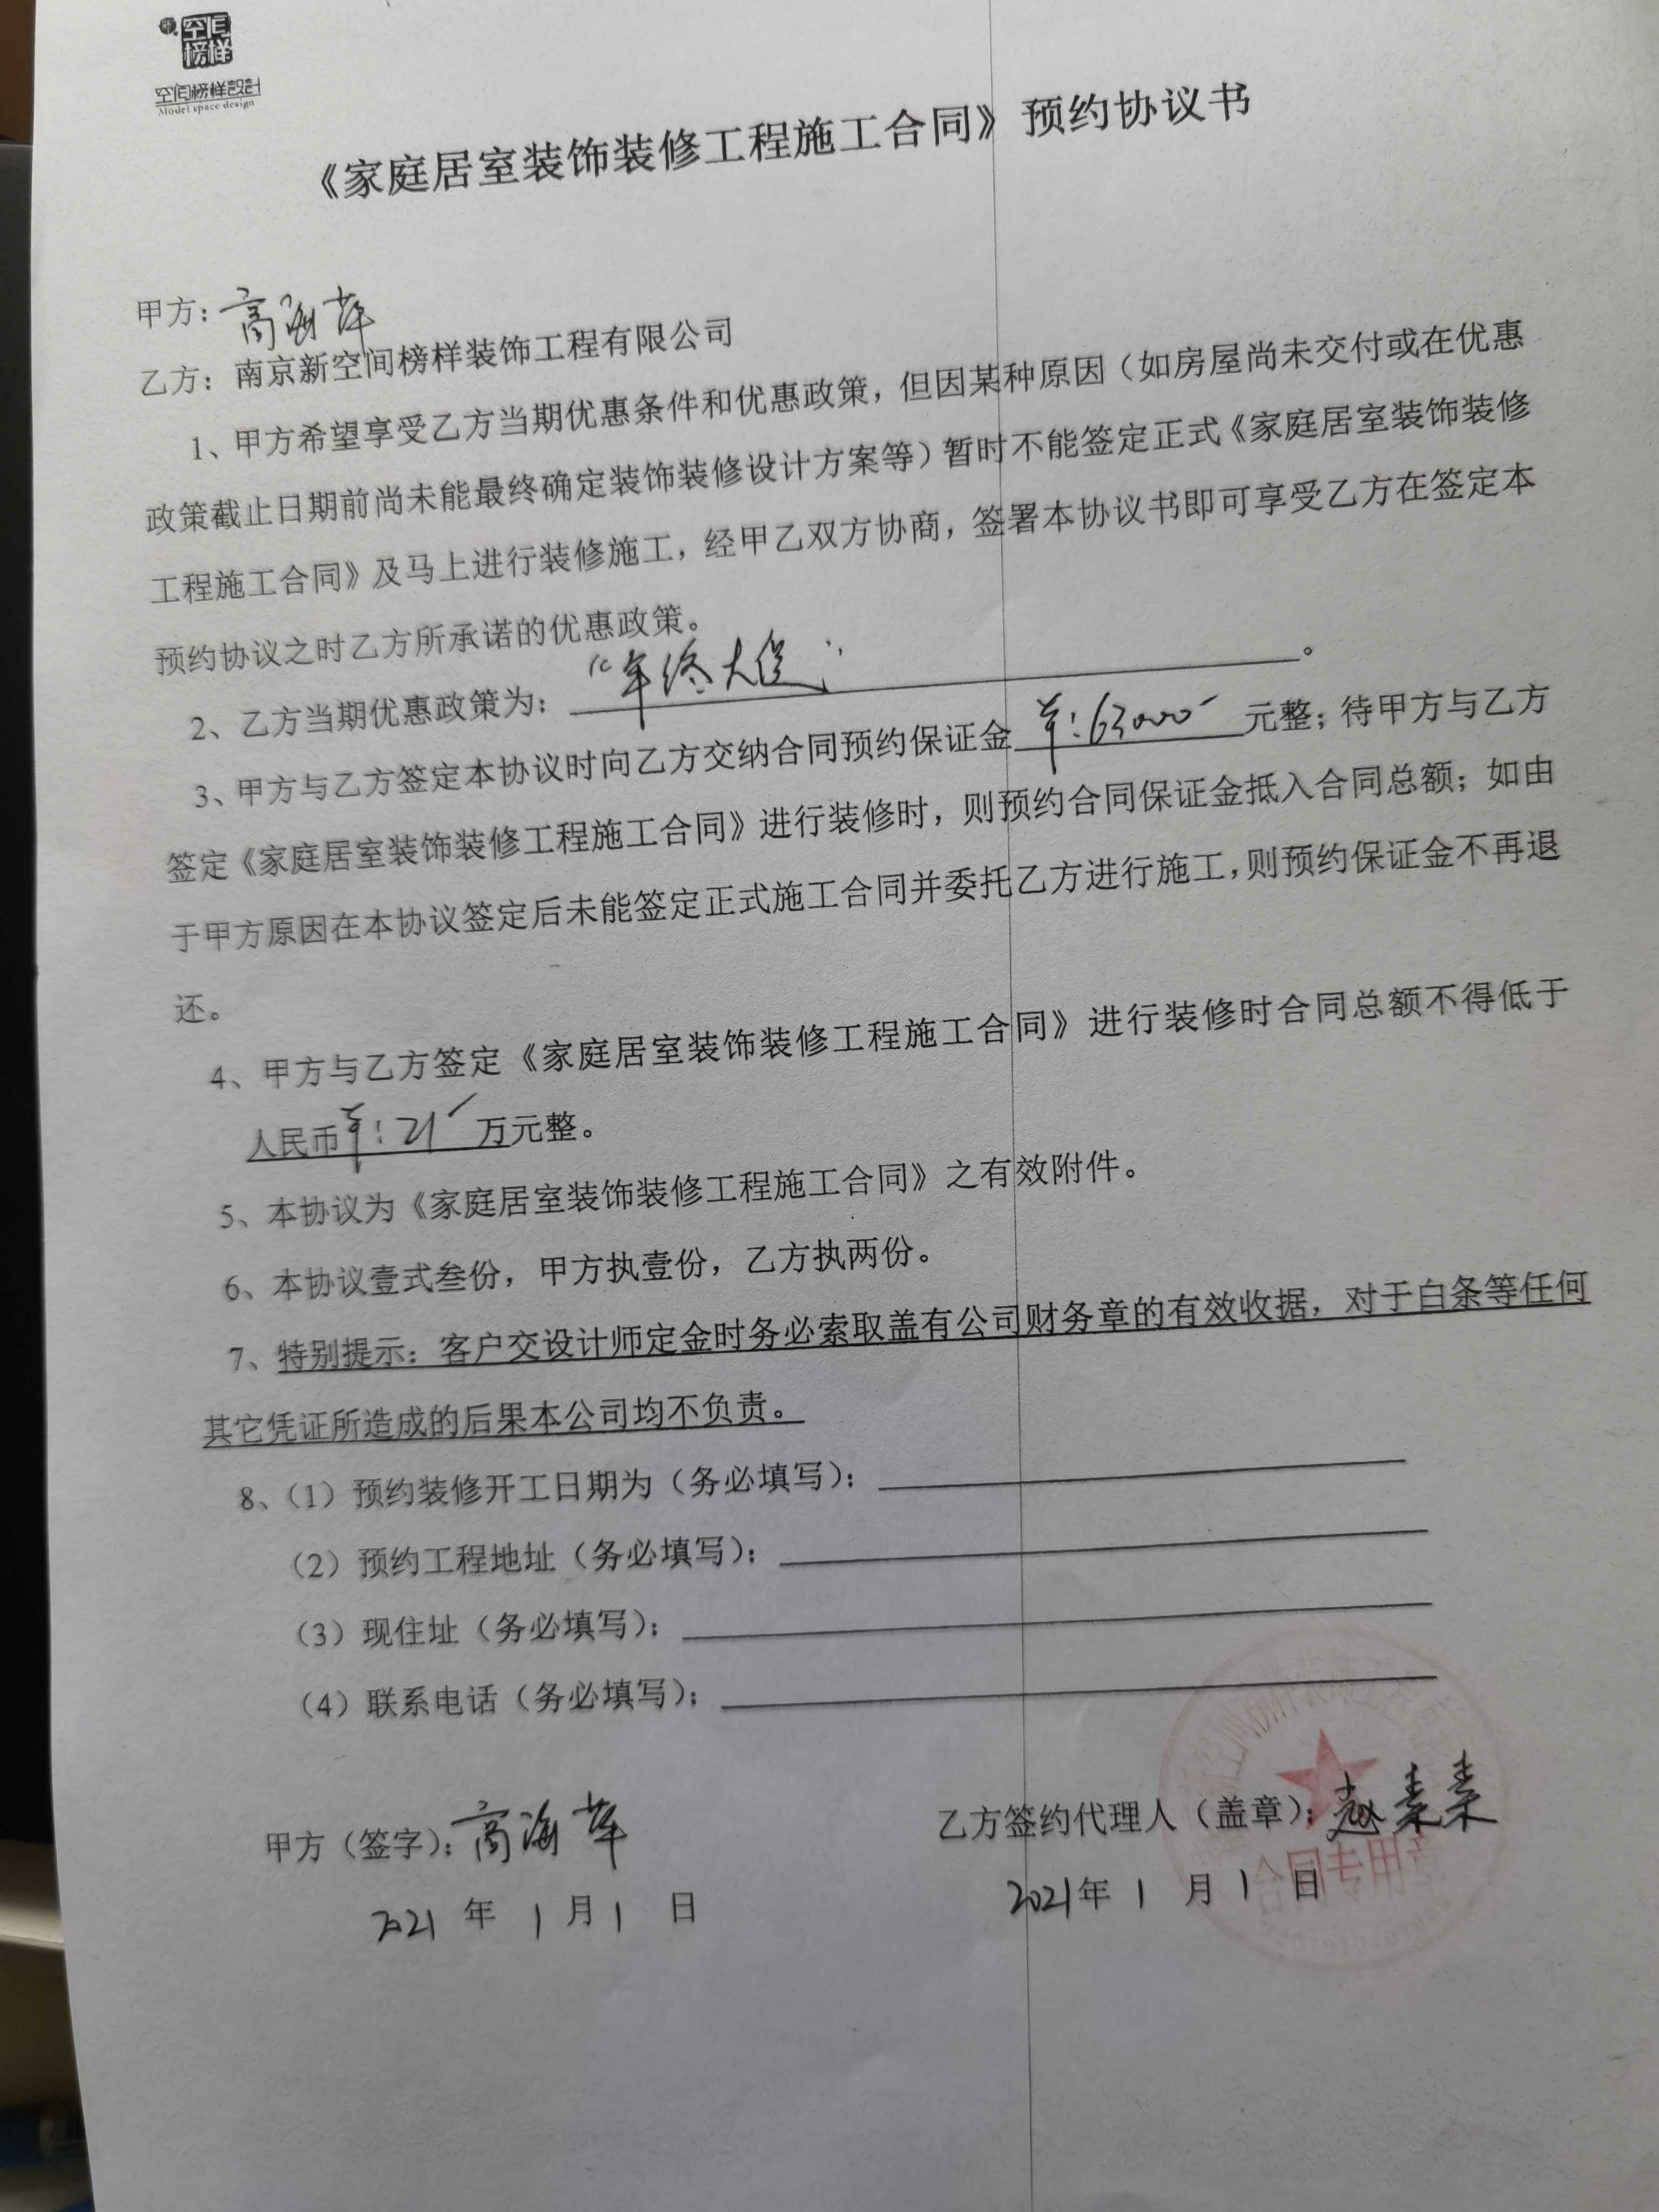 空间榜样
空间榜样設計
Model space design
《家庭居室装饰装修工程施工合同》预约协议书
甲方：高海萍
乙方：南京新空间榜样装饰工程有限公司
1、甲方希望享受乙方当期优惠条件和优惠政策，但因某种原因（如房屋尚未交付或在优惠
政策截止日期前尚未能最终确定装饰装修设计方案等）暂时不能签定正式《家庭居室装饰装修
工程施工合同》及马上进行装修施工，经甲乙双方协商，签署本协议书即可享受乙方在签定本
预约协议之时乙方所承诺的优惠政策。
2、乙方当期优惠政策为：“年终大促”。
3、甲方与乙方签定本协议时向乙方交纳合同预约保证金 ¥:63000 元整；待甲方与乙方
签定《家庭居室装饰装修工程施工合同》进行装修时，则预约合同保证金抵入合同总额；如由
于甲方原因在本协议签定后未能签定正式施工合同并委托乙方进行施工，则预约保证金不再退
还。
4、甲方与乙方签定《家庭居室装饰装修工程施工合同》进行装修时合同总额不得低于
人民币¥:21 万元整。
5、本协议为《家庭居室装饰装修工程施工合同》之有效附件。
6、本协议壹式叁份，甲方执壹份，乙方执两份。
7、特别提示：客户交设计师定金时务必索取盖有公司财务章的有效收据，对于白条等任何
其它凭证所造成的后果本公司均不负责。
8、（1）预约装修开工日期为（务必填写）：
（2）预约工程地址（务必填写）：
（3）现住址（务必填写）：
（4）联系电话（务必填写）：
甲方（签字）：高海萍
乙方签约代理人（盖章）：赵素素
合同专用章
2021 年 1 月 1 日
2021年 1 月 1 日